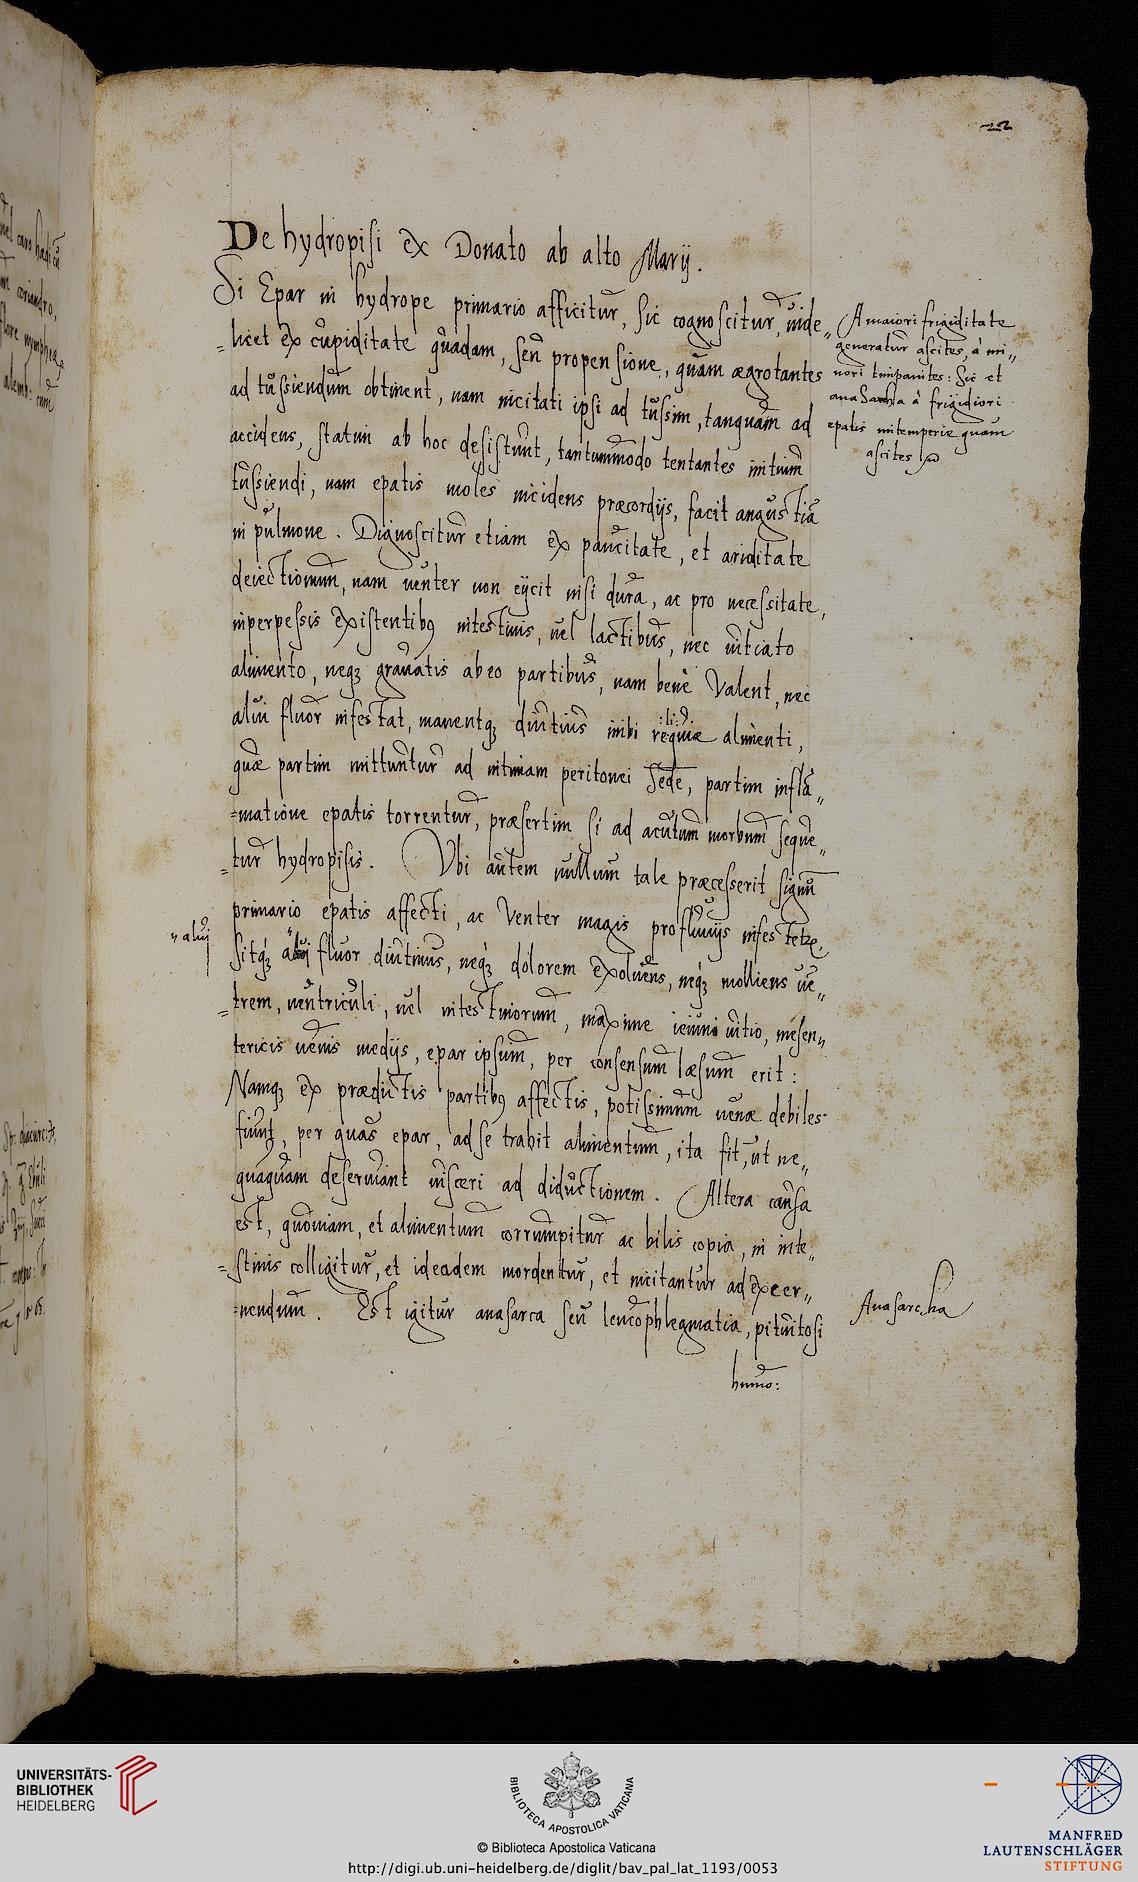 22
De hydropisi ex Donato ab alto Marij.
Si Epar in hydrope primario afficitur, sic cognoscitur, uide„
=licet ex cupiditate quadam, seu propensione, quam ægrotantes
ad tussiendum obtinent, nam incitati ipsi ad tussim, tanquam ad
accidens, statim ab hoc desistunt, tantummodo tentantes initium
tussiendi, nam epatis moles incidens præcordijs, facit angustiã
in pulmone. Dignoscitur etiam ex paucitate, et ariditate
deiectionum, nam uenter non eijcit nisi dura, ac pro necessitate,
inperpessis existentibꝰ intestinis, uel lactibus, nec uitiato
alimento, neqȝ grauatis ab eo partibus, nam benè Valent, nec
alui fluor infestat, manentqȝ diutius inibi reliquiæ alimenti,
quæ partim mittuntur ad intimam peritonei Sede, partim inflã„
=matione epatis torrentur, præsertim si ad acutum morbum seque„
=tur hydropisis. Vbi autem nullum tale præcesserit signũ
primario epatis affecti, ac Venter magis profluuijs infestetr,
Sitqȝ fluor diutinus, neqȝ dolorem exoluens, neqȝ molliens uẽ„
=trem, uentriculi, uel intestinorum, maxime ieiuni uitio, mesen„
tericis uenis medijs, epar ipsum, per consensum læsum erit:
Namqȝ ex prædictis partibꝰ affectis, potissimum uenæ debiles
fiunt, per quas epar, ad se trahit alimentum, ita fit, ut ne„
quaquam deseruiant uisceri ad diductionem. Altera causa
est, quoniam, et alimentum corrumpitur ac bilis copia, in inte„
=stinis colligitur, et ideadem mordentur, et incitantur ad excer„
=nendum. Est igitur anasarca seu leucophlegmatia, pituitosi
humo:
A maiori frigiditate
generatur ascites, à mi„
nori timpanites: Sic et
anaSarcha à frigidiori
epatis intemperie quam
ascites
„ aluj
Anasarcha
UNIVERSITÄTS-
BIBLIOTHEK
HEIDELBERG
BIBLIOTECA APOSTOLICA VATICANA
© Biblioteca Apostolica Vaticana
http://digi.ub.uni-heidelberg.de/diglit/bav_pal_lat_1193/0053
MANFRED
LAUTENSCHLÄGER
STIFTUNG